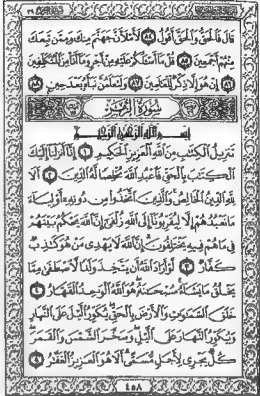 قَالَ فَالْحَقُّ وَالْحَقَّ أَقُولُ ٨٤ لَأَمْلَأَنَّ جَهَنَّمَ مِنكَ وَمِمَّن تَبِعَكَ
مِنْهُمْ أَجْمَعِينَ ٨٥ قُلْ مَا أَسْأَلُكُمْ عَلَيْهِ مِنْ أَجْرٍ وَمَا أَنَا مِنَ الْمُتَكَلِّفِينَ
٨٦ إِنْ هُوَ إِلَّا ذِكْرٌ لِّلْعَالَمِينَ ٨٧ وَلَتَعْلَمُنَّ نَبَأَهُ بَعْدَ حِينٍ ٨٨
سُورَةُ الزُّمَرِ
بِسْمِ اللَّهِ الرَّحْمَٰنِ الرَّحِيمِ
تَنزِيلُ الْكِتَابِ مِنَ اللَّهِ الْعَزِيزِ الْحَكِيمِ ١ إِنَّا أَنزَلْنَا إِلَيْكَ
الْكِتَابَ بِالْحَقِّ فَاعْبُدِ اللَّهَ مُخْلِصًا لَّهُ الدِّينَ ٢ أَلَا
لِلَّهِ الدِّينُ الْخَالِصُ وَالَّذِينَ اتَّخَذُوا مِن دُونِهِ أَوْلِيَاءَ
مَا نَعْبُدُهُمْ إِلَّا لِيُقَرِّبُونَا إِلَى اللَّهِ زُلْفَىٰ إِنَّ اللَّهَ يَحْكُمُ بَيْنَهُمْ
فِي مَا هُمْ فِيهِ يَخْتَلِفُونَ إِنَّ اللَّهَ لَا يَهْدِي مَنْ هُوَ كَاذِبٌ
كَفَّارٌ ٣ لَّوْ أَرَادَ اللَّهُ أَن يَتَّخِذَ وَلَدًا لَّاصْطَفَىٰ مِمَّا
يَخْلُقُ مَا يَشَاءُ سُبْحَانَهُ هُوَ اللَّهُ الْوَاحِدُ الْقَهَّارُ ٤
خَلَقَ السَّمَاوَاتِ وَالْأَرْضَ بِالْحَقِّ يُكَوِّرُ اللَّيْلَ عَلَى النَّهَارِ
وَيُكَوِّرُ النَّهَارَ عَلَى اللَّيْلِ وَسَخَّرَ الشَّمْسَ وَالْقَمَرَ
كُلٌّ يَجْرِي لِأَجَلٍ مُّسَمًّى أَلَا هُوَ الْعَزِيزُ الْغَفَّارُ ٥
٤٥٨